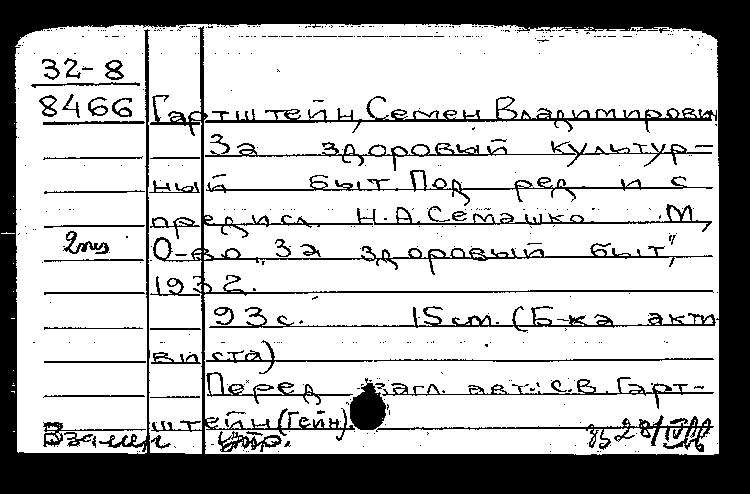 32-8
8466 Гартштейн, Семен Владимирови
За здоровый культур-
ный быт. Под ред. и с
предисл. Н.А. Семашко. М,
2 экз О-во „За здоровый быт",
1932.
93 с. 15 см. (Б-ка акти
виста)
Перед загл. авт.: С.В. Гарт-
штейн (Гейн).
Взамен утр.